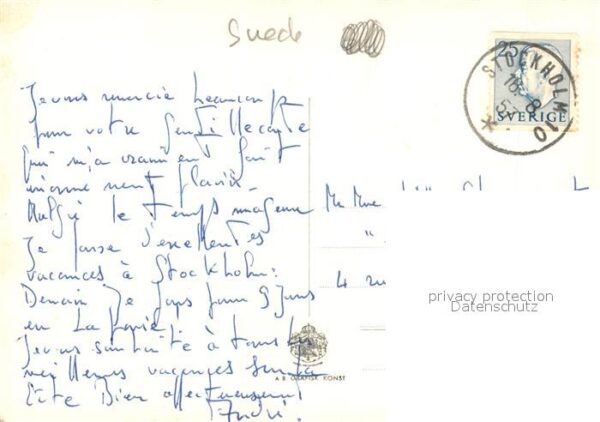 Suede
25
STOCKHOLM 10
18. 8
57
SVERIGE
Je vous remercie beaucoup
pour votre gentille carte
qui m'a vraiment fait
énormément plaisir.
Malgré le temps nuageux
Je passe d'excellentes
vacances à Stockholm.
Demain je pars pour 9 jours
en Laponie
Je vous souhaite à tous les
meilleures vacances
Bien affectueusement
André.
Mr Mme
"
4 rue
privacy protection
Datenschutz
A. B. GRAFISK KONST